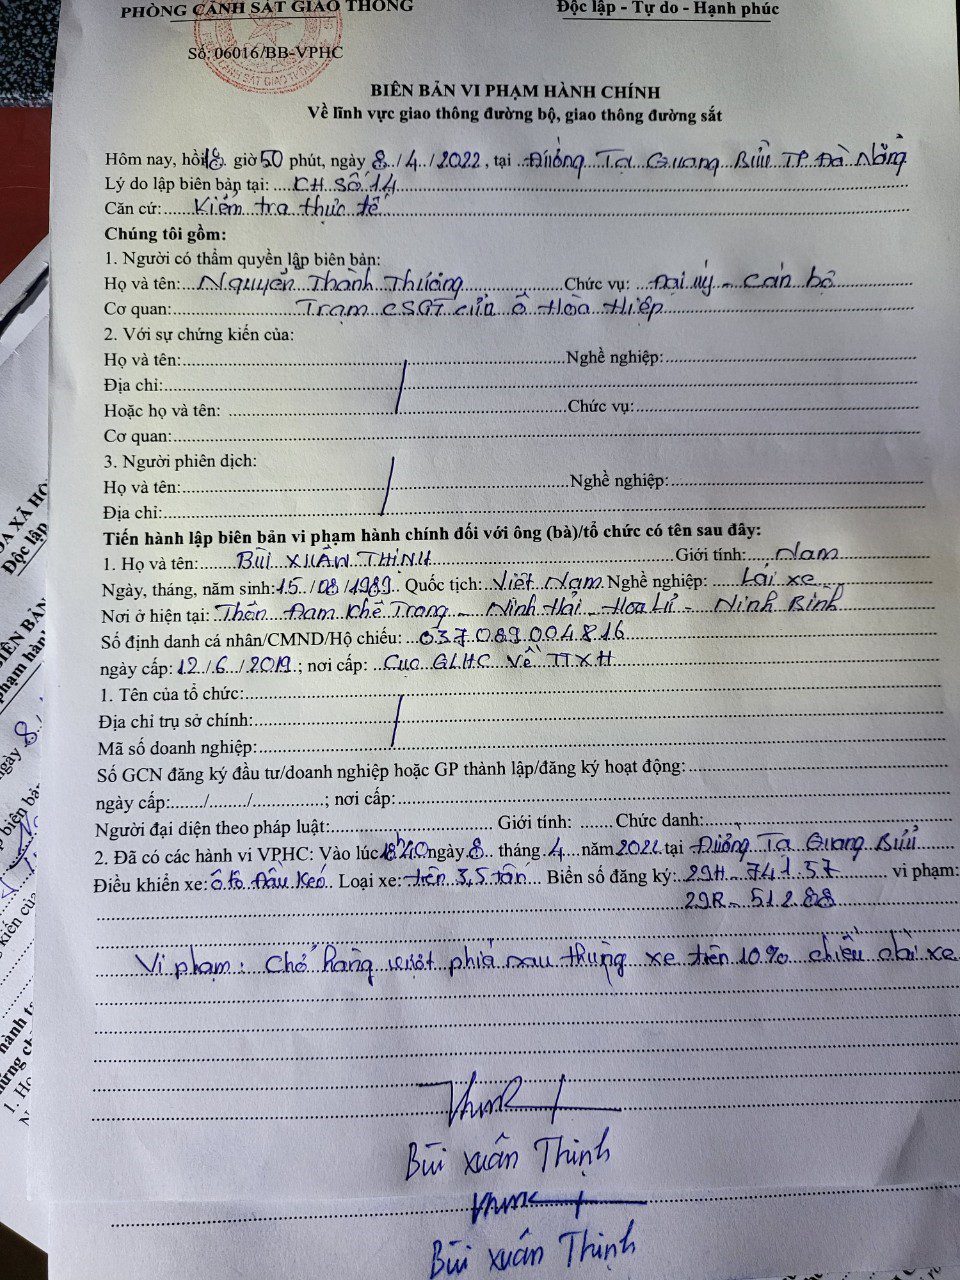 PHÒNG CẢNH SÁT GIAO THÔNG
Độc lập - Tự do - Hạnh phúc
Số: 06016/BB-VPHC
BIÊN BẢN VI PHẠM HÀNH CHÍNH
Về lĩnh vực giao thông đường bộ, giao thông đường sắt
Hôm nay, hồi 18 giờ 50 phút, ngày 8/4/2022, tại Đường Tạ Quang Bửu TP Đà Nẵng
Lý do lập biên bản tại: CH Số 14
Căn cứ: Kiểm tra thực tế
Chúng tôi gồm:
1. Người có thẩm quyền lập biên bản:
Họ và tên: Nguyễn Thành Thương Chức vụ: Đại úy - Cán bộ
Cơ quan: Trạm CSGT cửa ô Hòa Hiệp
2. Với sự chứng kiến của:
Họ và tên: Nghề nghiệp:
Địa chỉ:
Hoặc họ và tên: Chức vụ:
Cơ quan:
3. Người phiên dịch:
Họ và tên: Nghề nghiệp:
Địa chỉ:
Tiến hành lập biên bản vi phạm hành chính đối với ông (bà)/tổ chức có tên sau đây:
1. Họ và tên: BÙI XUÂN THỊNH Giới tính: Nam
Ngày, tháng, năm sinh: 15/08/1989 Quốc tịch: Việt Nam Nghề nghiệp: Lái xe
Nơi ở hiện tại: Thôn Đam Khê Trong - Ninh Hải - Hoa Lư - Ninh Bình
Số định danh cá nhân/CMND/Hộ chiếu: 037089004816
ngày cấp: 12/6/2019; nơi cấp: Cục QLHC Về TTXH
1. Tên của tổ chức:
Địa chỉ trụ sở chính:
Mã số doanh nghiệp:
Số GCN đăng ký đầu tư/doanh nghiệp hoặc GP thành lập/đăng ký hoạt động:
ngày cấp:....../......./..............; nơi cấp:
Người đại diện theo pháp luật: Giới tính: ....... Chức danh:
2. Đã có các hành vi VPHC: Vào lúc 18h40 ngày 8 tháng 4 năm 2022 tại Đường Tạ Quang Bửu
Điều khiển xe: ô tô Đầu Kéo Loại xe: trên 3,5 tấn Biển số đăng ký: 29H-741.57 vi phạm:
29R-512.88
Vi phạm: Chở hàng vượt phía sau thùng xe trên 10% chiều dài xe
Bùi Xuân Thịnh
Bùi Xuân Thịnh